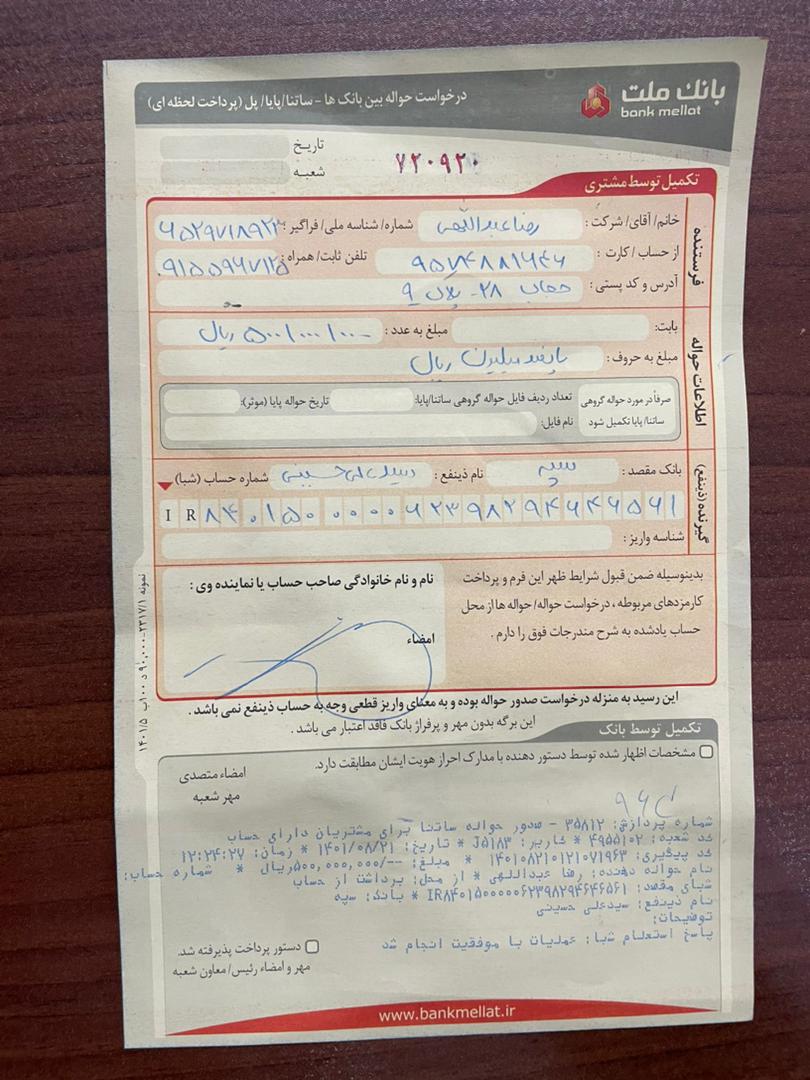 بانک ملت
bank mellat
درخواست حواله بین بانک ها - ساتنا/پایا/ پل (پرداخت لحظه ای)
تاریخ
شعبه
۷۲۰۹۲۰
تکمیل توسط مشتری
فرستنده
خانم/ آقای/ شرکت: رضا عبداللهی شماره/ شناسه ملی/ فراگیر:
از حساب / کارت: تلفن ثابت/ همراه:
آدرس و کد پستی: حجاب ۲۸- پلاک ۹
اطلاعات حواله
بابت: مبلغ به عدد: ۵۰۰/۰۰۰/۰۰۰ ریال
مبلغ به حروف: پانصد میلیون ریال
صرفاً در مورد حواله گروهی ساتنا/ پایا تکمیل شود
تعداد ردیف فایل حواله گروهی ساتنا/پایا: تاریخ حواله پایا (موثر):
نام فایل:
گیرنده (ذینفع)
بانک مقصد: سپه نام ذینفع: سید علی حسینی شماره حساب (شبا)
IR ۸۴۰۱۵۰۰۰۰۰۰۶۲۳۹۸۲۹۴۶۴۶۵۶۱
شناسه واریز:
بدینوسیله ضمن قبول شرایط ظهر این فرم و پرداخت
کارمزدهای مربوطه، درخواست حواله/ حواله ها از محل
حساب یادشده به شرح مندرجات فوق را دارم.
نام و نام خانوادگی صاحب حساب یا نماینده وی:
امضاء
این رسید به منزله درخواست صدور حواله بوده و به معنای واریز قطعی وجه به حساب ذینفع نمی باشد.
این برگه بدون مهر و پرفراژ بانک فاقد اعتبار می باشد.
تکمیل توسط بانک
مشخصات اظهار شده توسط دستور دهنده با مدارک احراز هویت ایشان مطابقت دارد.
امضاء متصدی
مهر شعبه
شماره پردازش: ۳۵۸۱۲ - صدور حواله ساتنا برای مشتریان دارای حساب
کد شعبه: ۴۹۵۵۱۰۲ * کاربر: J۵۱۸۳ * تاریخ: ۱۴۰۱/۰۸/۲۱ * زمان: ۱۲:۲۴:۲۷
کد پیگیری: ۱۴۰۱۰۸۲۱۰۱۲۱۰۷۱۹۶۳ * مبلغ: --/۵۰۰,۰۰۰,۰۰۰ریال * شماره حساب:
نام حواله دهنده: رضا عبداللهی * از محل: برداشت از حساب
شبای مقصد: IR۸۴۰۱۵۰۰۰۰۰۰۶۲۳۹۸۲۹۴۶۴۶۵۶۱ * بانک: سپه
نام ذینفع: سیدعلی حسینی
توضیحات:
پاسخ استعلام شبا: عملیات با موفقیت انجام شد
دستور پرداخت پذیرفته شد.
مهر و امضاء رئیس/ معاون شعبه
www.bankmellat.ir